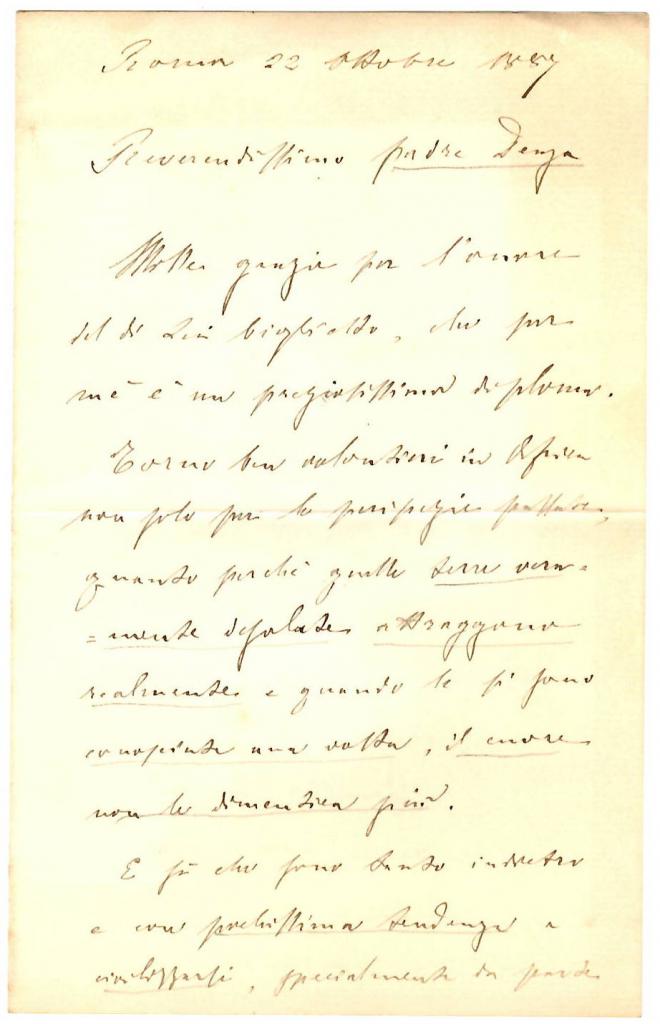 Roma 22 Ottobre 1887
Reverendissimo padre Denza
Mille grazie per l'onore
del di Lei biglietto, che per
me è un preziosissimo diploma.
Torno ben volontieri in Africa
non solo per le peripezie passate,
quanto perchè quelle terre vera=
=mente desolate attraggono
realmente e quando le si sono
conosciute una volta, il cuore
non le dimentica più.
E sì che sono tanto indietro
e con pochissima tendenza a
civilizzarsi, specialmente da parte